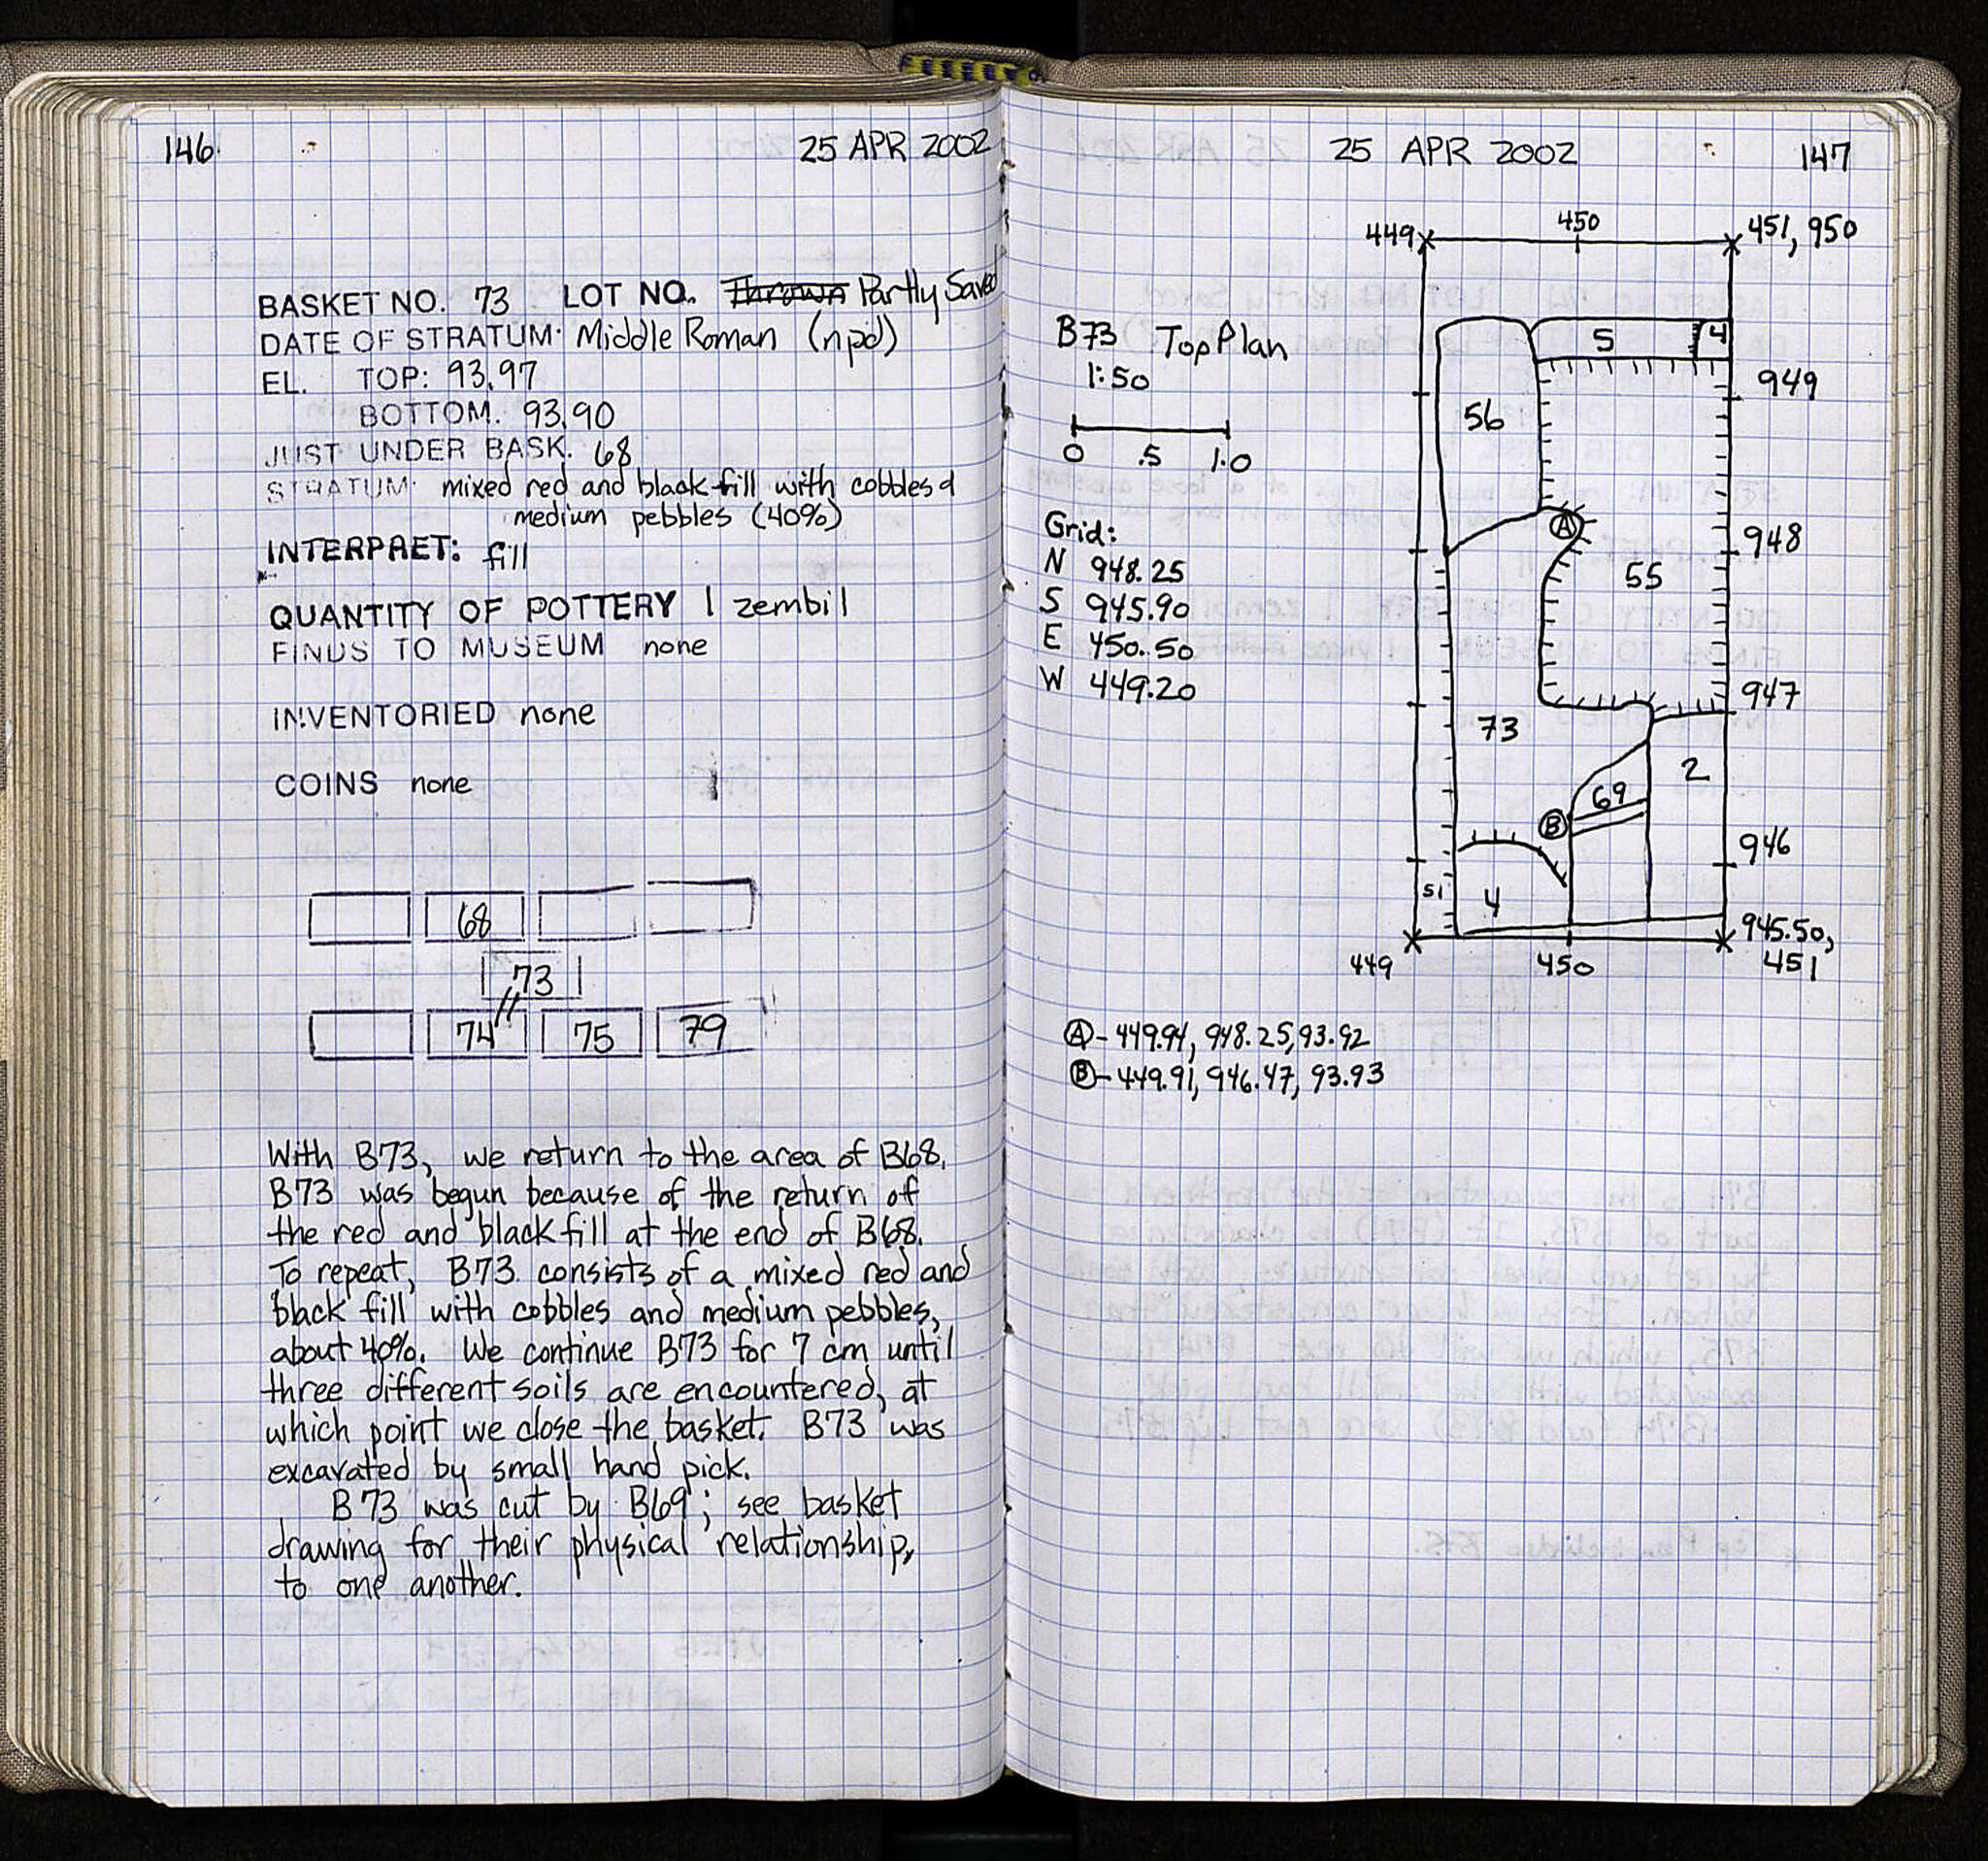 146.
25 APR 2002
BASKET NO. 73 LOT NO. Thrown Partly Saved
DATE OF STRATUM. Middle Roman (npd)
EL. TOP: 93.97
BOTTOM. 93.90
JUST UNDER BASK. 68
STRATUM. mixed red and black fill with cobbles &
medium pebbles (40%)
INTERPRET: fill
QUANTITY OF POTTERY 1 zembil
FINDS TO MUSEUM none
INVENTORIED none
COINS none
68
73
//
74 75 79
With B73, we return to the area of B68.
B73 was begun because of the return of
the red and black fill at the end of B68.
To repeat, B73 consists of a mixed red and
black fill with cobbles and medium pebbles,
about 40%. We continue B73 for 7 cm until
three different soils are encountered, at
which point we close the basket. B73 was
excavated by small hand pick.
B73 was cut by B69; see basket
drawing for their physical relationship
to one another.
25 APR 2002
147
449 450 451, 950
B73 Top Plan
1:50
0 .5 1.0
Grid:
N 948.25
S 945.90
E 450.50
W 449.20
5 4
949
56
A
948
55
947
73
2
69
B
946
51 4
945.50,
449 450 451
A - 449.94, 948.25, 93.92
B - 449.91, 946.47, 93.93